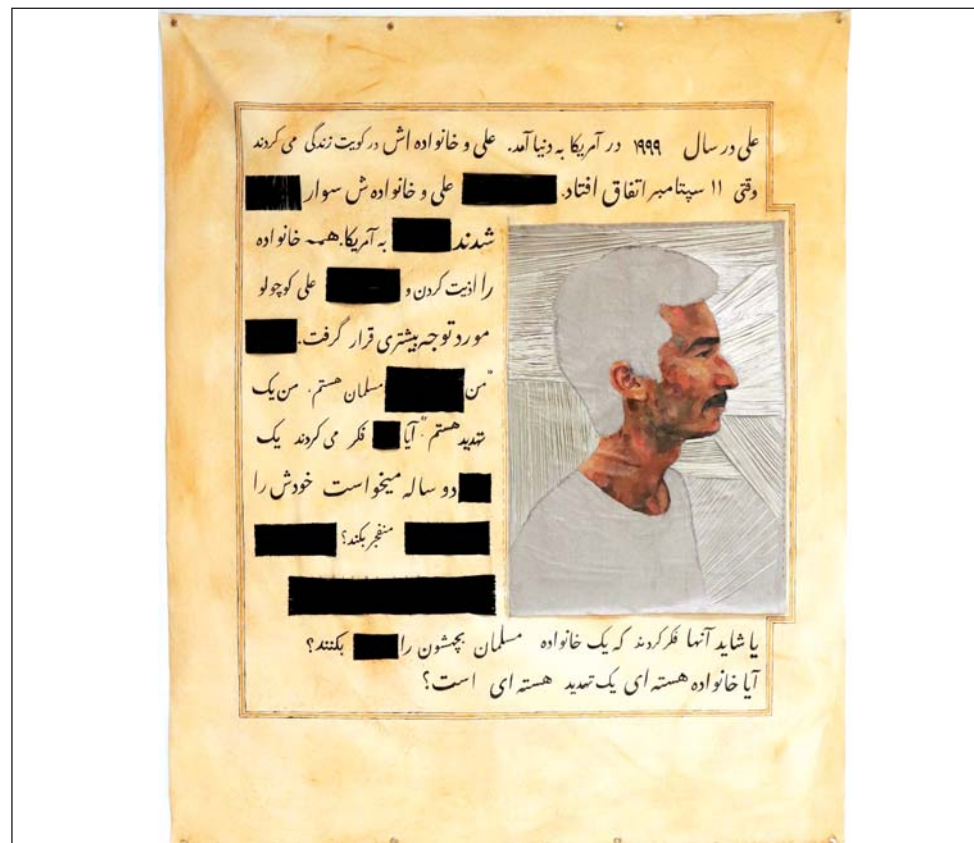 علی در سال ۱۹۹۹ در آمریکا به دنیا آمد. علی و خانواده اش در کویت زندگی می کردند
وقتی ۱۱ سپتامبر اتفاق افتاد. علی و خانواده ش سوار
شدند به آمریکا. همه خانواده
را اذیت کردن و علی کوچولو
مورد توجه بیشتری قرار گرفت.
"من مسلمان هستم. من یک
تهدید هستم" آیا فکر می کردند یک
دو ساله میخواست خودش را
منفجر بکند؟
یا شاید آنها فکر کردند که یک خانواده مسلمان بچشون را بکنند؟
آیا خانواده هسته ای یک تهدید هسته ای است؟